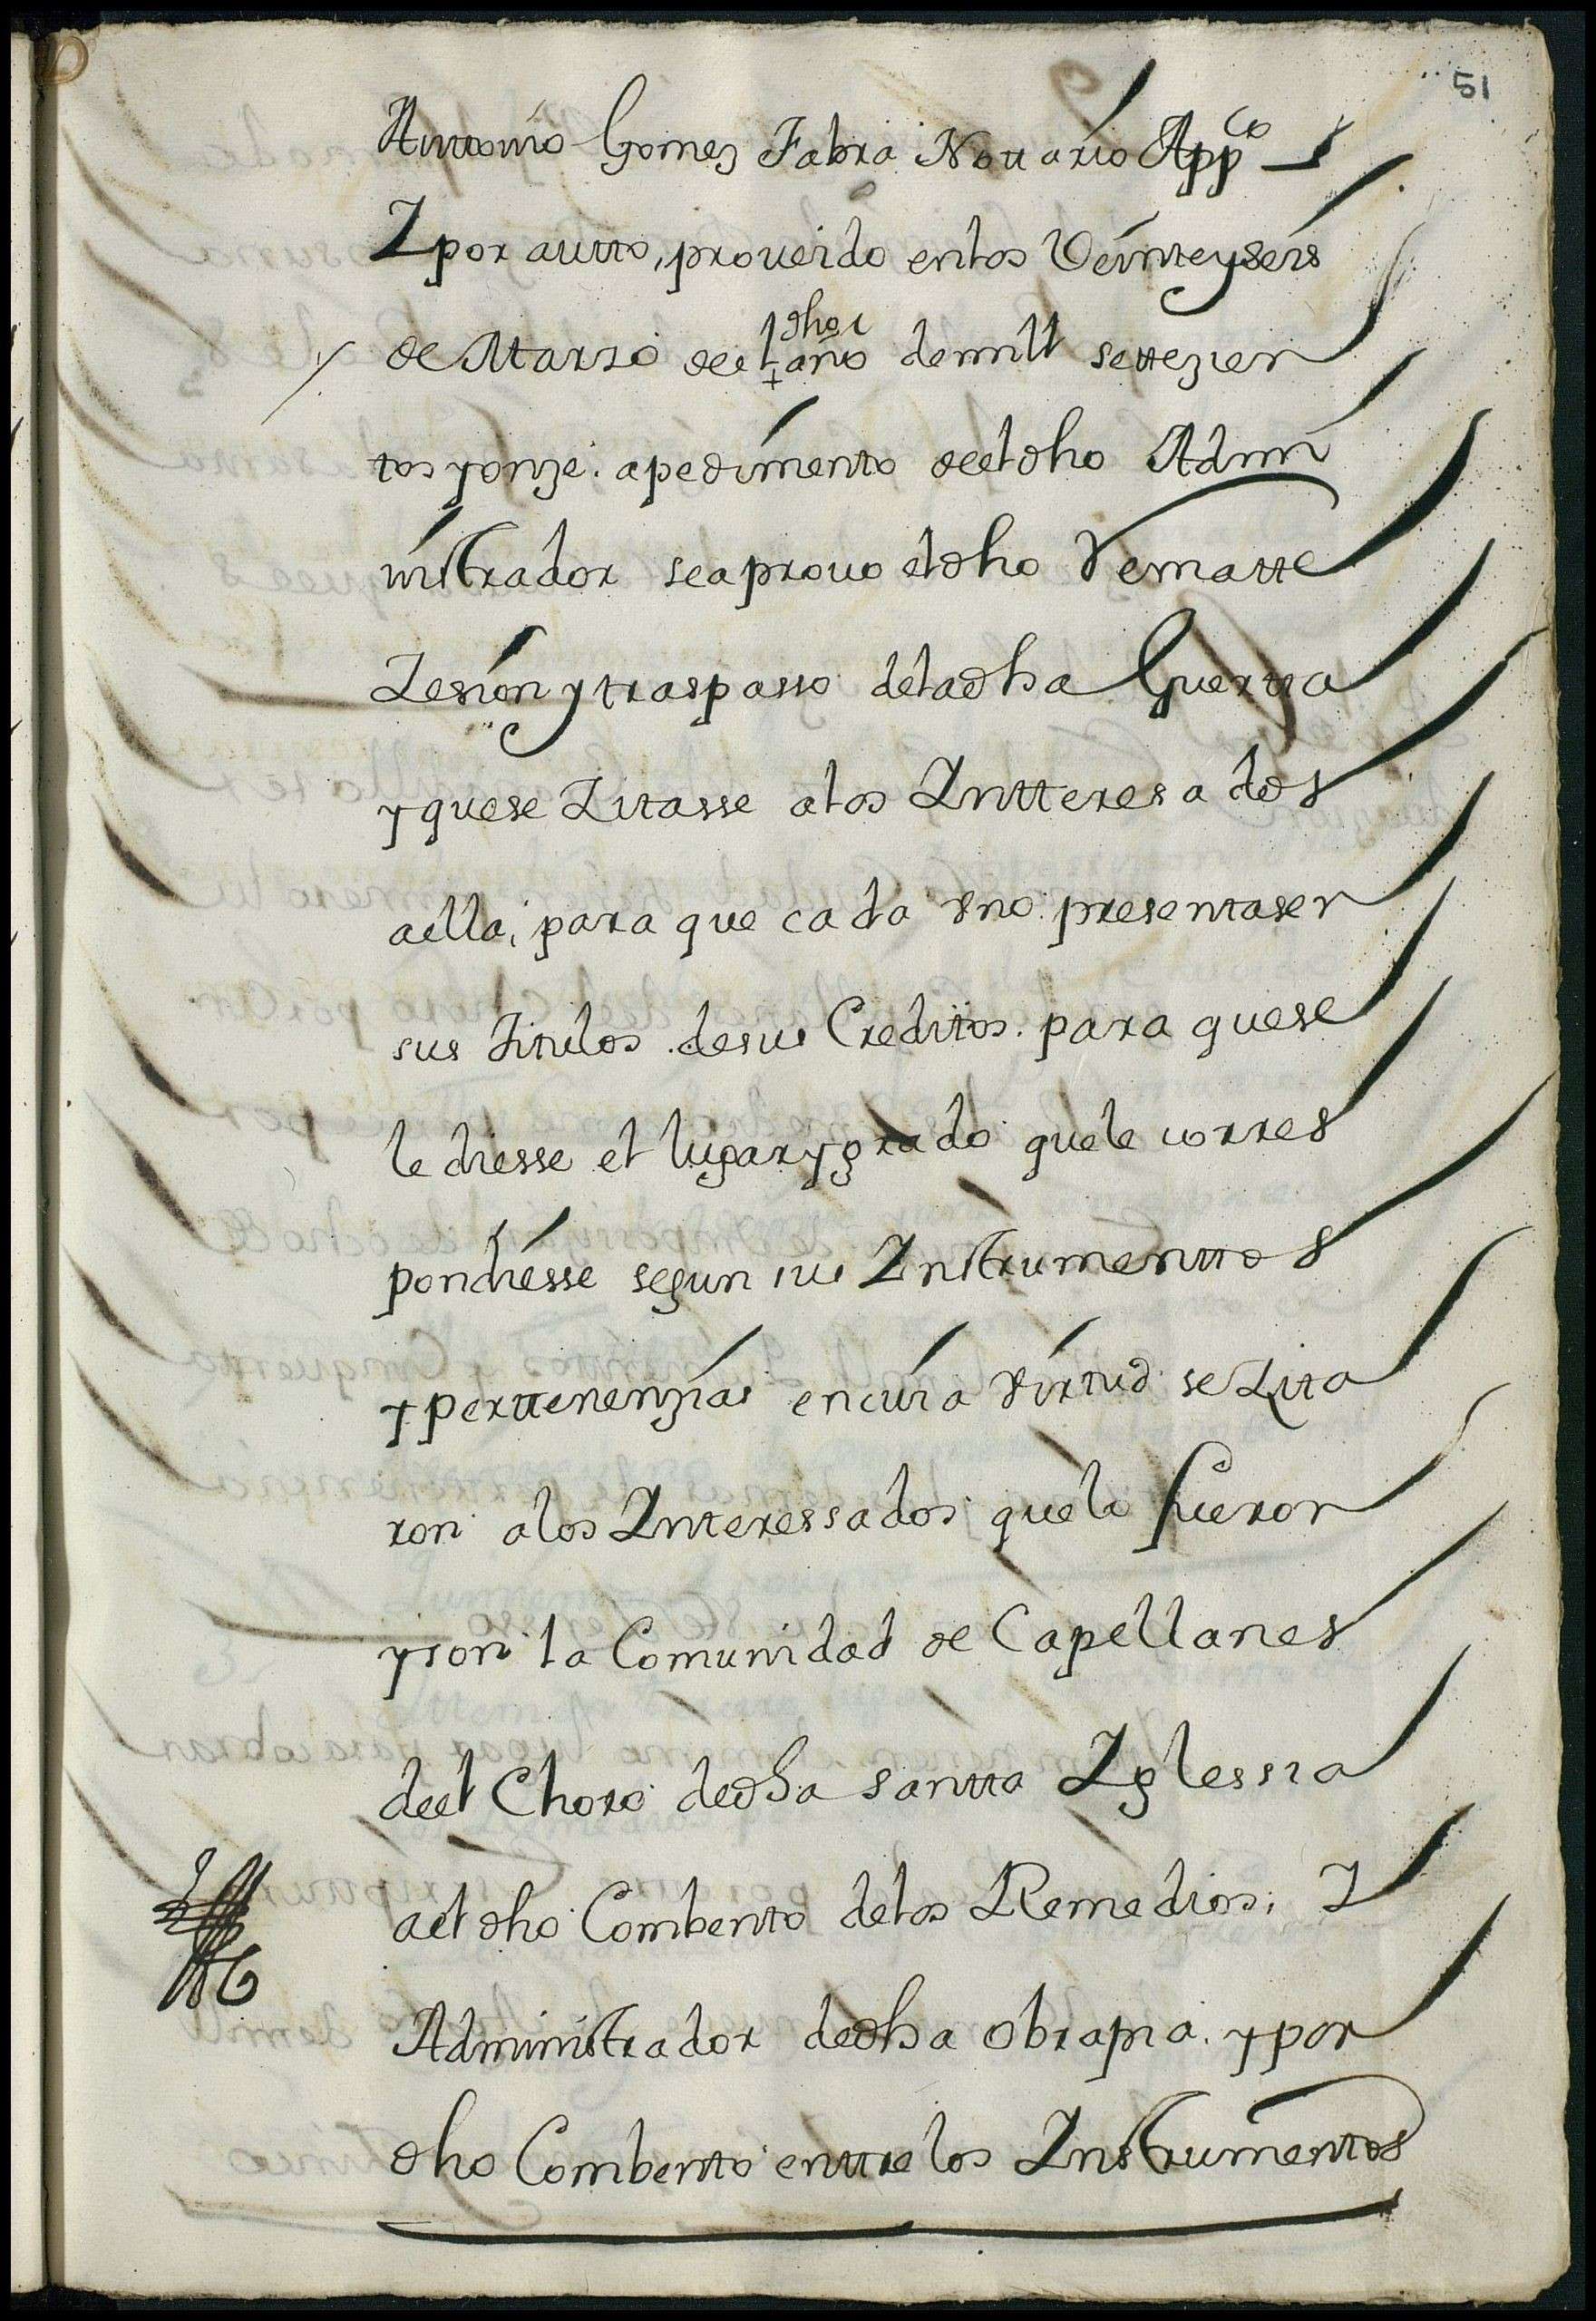 51
Anttonio Gomez Fabra Nottario App.co
Y por autto, proueido enlos Veinteyseis
de Marzo deel dho año demill settezien
tos yonze. apedimento deeldho Admi
nistrador seaprouo eldho Rematte
Zesion ytraspasso deladha Guertta
yquese Zitasse alos Yntteresados
aella, para que cada vno presentasen
sus titulos desus Creditos. para quese
le diesse el lugar ygrado quele corres
pondiesse segun sus Ynstrumenttos
y perttenenzias encuia virtud se Zita
ron alos Ynteressados quelo fueron
yson la Comunidad de Capellanes
deel Choro dedha santta Yglessia
aeldho Combento delos Remedios; Y
Administrador dedha obrapia. ypor
dho Combento enttre los Ynstrumentos